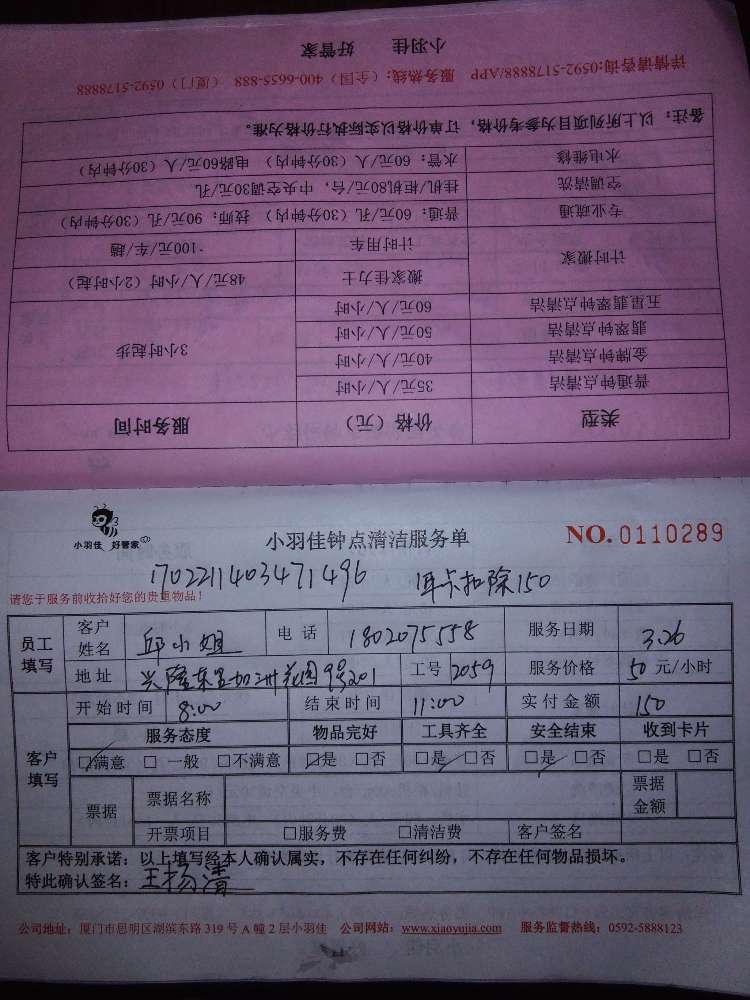 小羽佳 好管家
详情请咨询:0592-5178888/APP 服务热线:(全国) 400-6655-888 (厦门) 0592-5178888
备注:以上所列项目为参考价格,订单价格以实际执行价格为准。
水电维修 水管:60元/人(30分钟内) 电路60元/人(30分钟内)
空调清洗 挂机/柜机80元/台,中央空调30元/孔
专业疏通 普通:60元/孔(30分钟内) 技师:90元/孔(30分钟内)
计时搬家 计时用车 100元/车/趟
搬家佳力士 48元/人/小时(2小时起)
五星翡翠钟点清洁 60元/人/小时
翡翠钟点清洁 50元/人/小时 3小时起步
金牌钟点清洁 40元/人/小时
普通钟点清洁 35元/人/小时
类型 价格(元) 服务时间
小羽佳 好管家
小羽佳钟点清洁服务单 NO. 0110289
1702211403471496 扣除150
请您于服务前收拾好您的贵重物品!
员工填写 客户姓名 邱小姐 电话 1802075558 服务日期 3.26
地址 兴隆东里加洲花园9号201 工号 2059 服务价格 50 元/小时
开始时间 8:00 结束时间 11:00 实付金额 150
客户填写 服务态度 物品完好 工具齐全 安全结束 收到卡片
□满意 □一般 □不满意 □是 □否 □是 □否 □是 □否 □是 □否
票据 票据名称 票据金额
开票项目 □服务费 □清洁费 客户签名
客户特别承诺:以上填写经本人确认属实,不存在任何纠纷,不存在任何物品损坏。
特此确认签名:王杨清
公司地址:厦门市思明区湖滨东路319号A幢2层小羽佳 公司网站:www.xiaoyujia.com 服务监督热线:0592-5888123